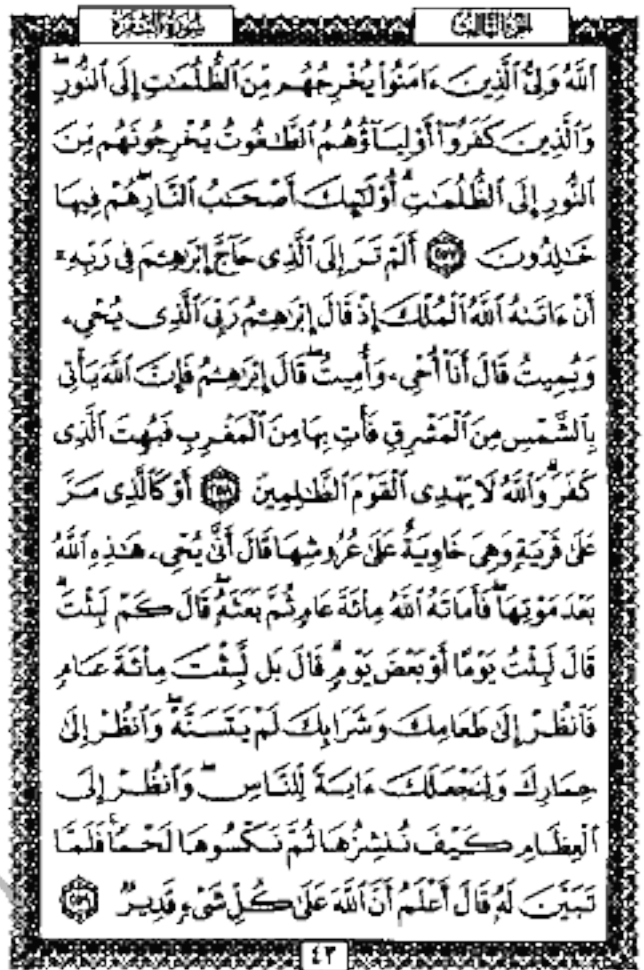 سُورَةُ البَقَرَةِ
الجُزْءُ الثَّالِثُ
ٱللَّهُ وَلِيُّ ٱلَّذِينَ ءَامَنُوا۟ يُخْرِجُهُم مِّنَ ٱلظُّلُمَٰتِ إِلَى ٱلنُّورِۖ
وَٱلَّذِينَ كَفَرُوٓا۟ أَوْلِيَآؤُهُمُ ٱلطَّٰغُوتُ يُخْرِجُونَهُم مِّنَ
ٱلنُّورِ إِلَى ٱلظُّلُمَٰتِۗ أُو۟لَٰٓئِكَ أَصْحَٰبُ ٱلنَّارِۖ هُمْ فِيهَا
خَٰلِدُونَ ٢٥٧ أَلَمْ تَرَ إِلَى ٱلَّذِى حَآجَّ إِبْرَٰهِـۧمَ فِى رَبِّهِۦٓ
أَنْ ءَاتَىٰهُ ٱللَّهُ ٱلْمُلْكَ إِذْ قَالَ إِبْرَٰهِـۧمُ رَبِّىَ ٱلَّذِى يُحْىِۦ
وَيُمِيتُ قَالَ أَنَا۠ أُحْىِۦ وَأُمِيتُۖ قَالَ إِبْرَٰهِـۧمُ فَإِنَّ ٱللَّهَ يَأْتِى
بِٱلشَّمْسِ مِنَ ٱلْمَشْرِقِ فَأْتِ بِهَا مِنَ ٱلْمَغْرِبِ فَبُهِتَ ٱلَّذِى
كَفَرَۗ وَٱللَّهُ لَا يَهْدِى ٱلْقَوْمَ ٱلظَّٰلِمِينَ ٢٥٨ أَوْ كَٱلَّذِى مَرَّ
عَلَىٰ قَرْيَةٍ وَهِىَ خَاوِيَةٌ عَلَىٰ عُرُوشِهَا قَالَ أَنَّىٰ يُحْىِۦ هَٰذِهِ ٱللَّهُ
بَعْدَ مَوْتِهَاۖ فَأَمَاتَهُ ٱللَّهُ مِا۟ئَةَ عَامٍ ثُمَّ بَعَثَهُۥۖ قَالَ كَمْ لَبِثْتَۖ
قَالَ لَبِثْتُ يَوْمًا أَوْ بَعْضَ يَوْمٍۖ قَالَ بَل لَّبِثْتَ مِا۟ئَةَ عَامٍ
فَٱنظُرْ إِلَىٰ طَعَامِكَ وَشَرَابِكَ لَمْ يَتَسَنَّهْۖ وَٱنظُرْ إِلَىٰ
حِمَارِكَ وَلِنَجْعَلَكَ ءَايَةً لِّلنَّاسِۖ وَٱنظُرْ إِلَى
ٱلْعِظَامِ كَيْفَ نُنشِزُهَا ثُمَّ نَكْسُوهَا لَحْمًاۚ فَلَمَّا
تَبَيَّنَ لَهُۥ قَالَ أَعْلَمُ أَنَّ ٱللَّهَ عَلَىٰ كُلِّ شَىْءٍ قَدِيرٌ ٢٥٩
٤٣